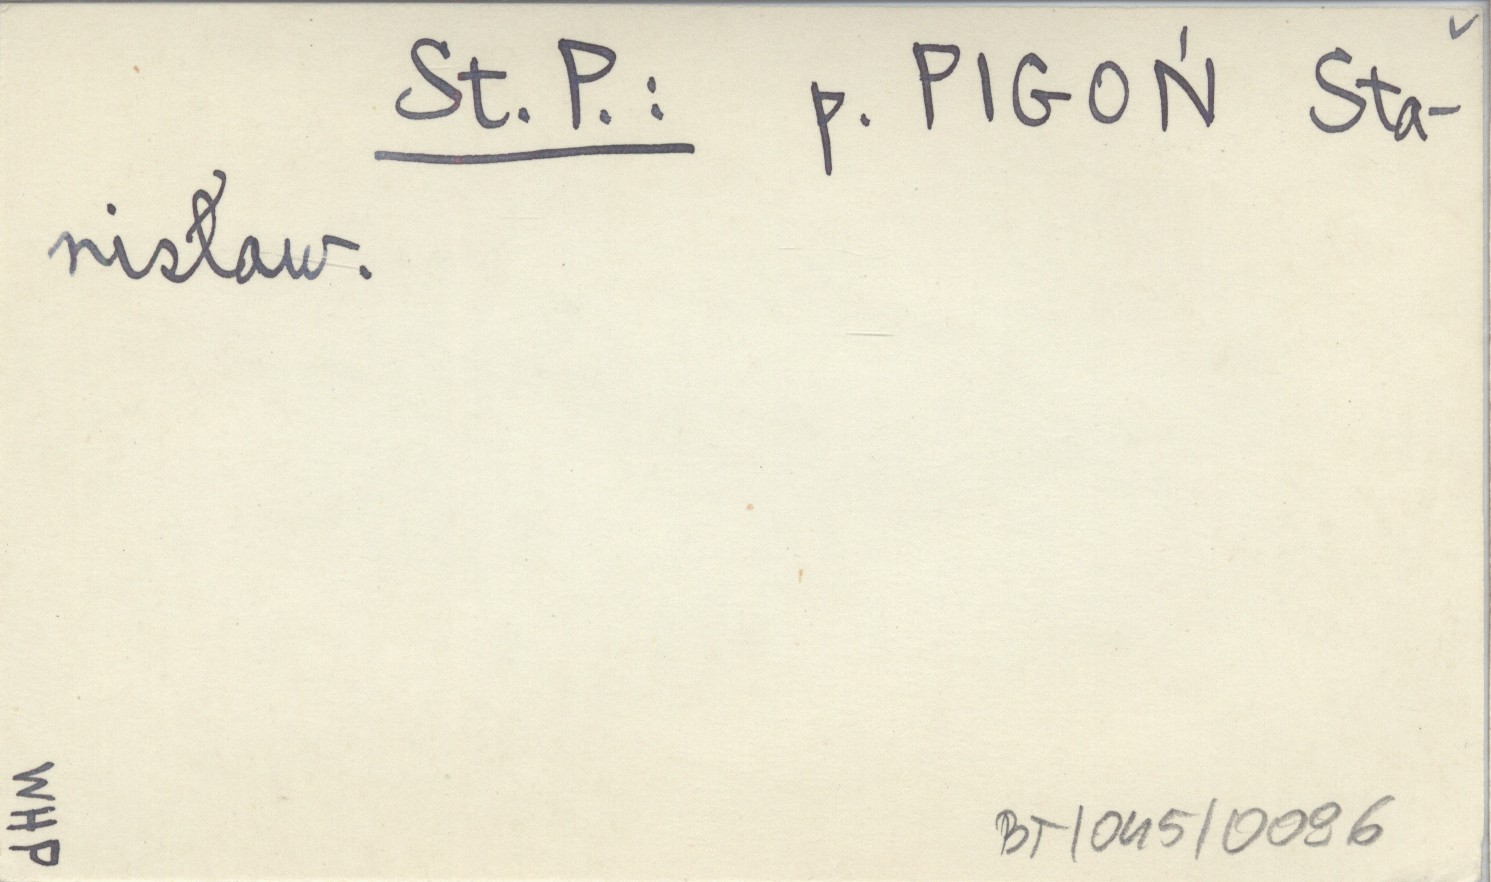 St. P.: p. PIGOŃ Sta-
nisław.
WHP
BT/045/0086